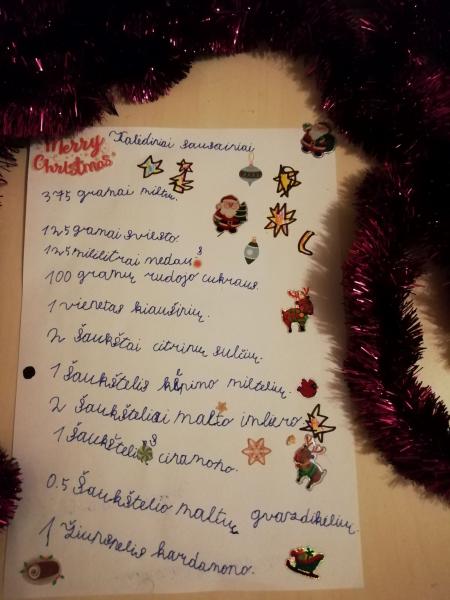 Merry
Christmas
Kalėdiniai sausainiai
375 gramai miltų.
125 gramai sviesto.
125 mililitrai medaus
100 gramų rudojo cukraus.
1 vienetas kiaušinių.
2 šaukštai citrinų sulčių.
1 šaukštelis kepimo miltelių.
2 šaukšteliai malto imbiero
1 šaukštelis cinamono.
0.5 šaukštelio maltų gvazdikėlių.
1 žiupsnelis kardamono.